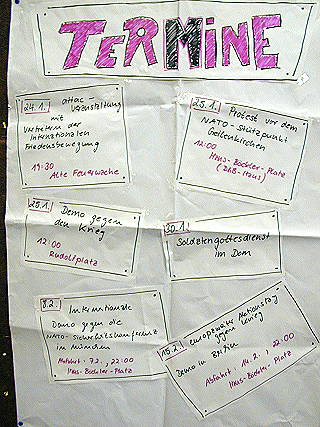 TERMINE
24.1. attac Veranstaltung
mit
Vertretern der
Internationalen
Friedensbewegung
19:30
Alte Feuerwache
25.1. Protest vor dem
NATO-Stützpunkt
Geilenkirchen
12:00
Hans-Böckler-Platz
(DGB-Haus)
25.1. Demo gegen
den Krieg
12:00
Rudolfplatz
30.1.
Soldatengottesdienst
im Dom
8.2. Internationale
Demo gegen die
NATO-Sicherheitskonferenz
in München
Abfahrt: 7.2., 22:00
Hans-Böckler-Platz
15.2. europaweiter Aktionstag
gegen Krieg
Demo in Berlin
Abfahrt: 14.2. 22:00
Hans-Böckler-Platz